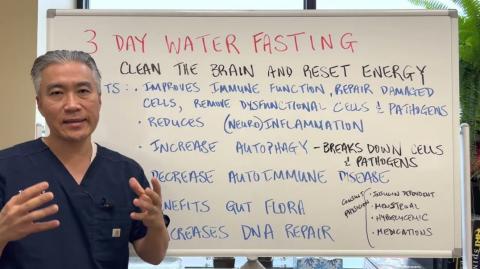 3 DAY WATER FASTING
CLEAN THE BRAIN AND RESET ENERGY
TS : • IMPROVES IMMUNE FUNCTION, REPAIR DAMAGED
CELLS, REMOVE DYSFUNCTIONAL CELLS & PATHOGENS
• REDUCES (NEURO)INFLAMMATION
• INCREASE AUTOPHAGY - BREAKS DOWN CELLS
& PATHOGENS
DECREASE AUTOIMMUNE DISEASE
NEFITS GUT FLORA
CREASES DNA REPAIR
CONSULT
PHYSICIAN
• INSULIN DEPENDENT
• MENSTRUAL
• HYPOGLYCEMIC
• MEDICATIONS